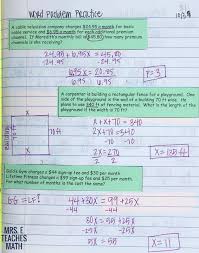 Word Problem Practice
A cable television company charges $24.95 a month for basic
cable service and $6.95 a month for each additional premium
channel. If Meredith's monthly bill is $45.80, how many premium
channels is she receiving?
24.95 + 6.95x = 45.80
-24.95 -24.95
6.95x = 20.85
6.95 6.95
P=3
A carpenter is building a rectangular fence for a playground. One
side of the playground is the wall of a building 70 ft wide. He
plans to use 340 ft of fencing material. What is the length of the
playground if the width is 70 ft?
70 ft
x+x+70 = 340
2x+70=340
-70 -70
Gold's Gym charges a $44 sign-up fee and $30 per month
Lifetime Fitness charges a $99 sign-up fee and $25 per month.
For what number of months is the cost the same?
GG = LF!
44+30x = 99+25x
-44 -44
30x = 55+25x
5x = 55
X=11
MRS. E
TEACHES
MATH